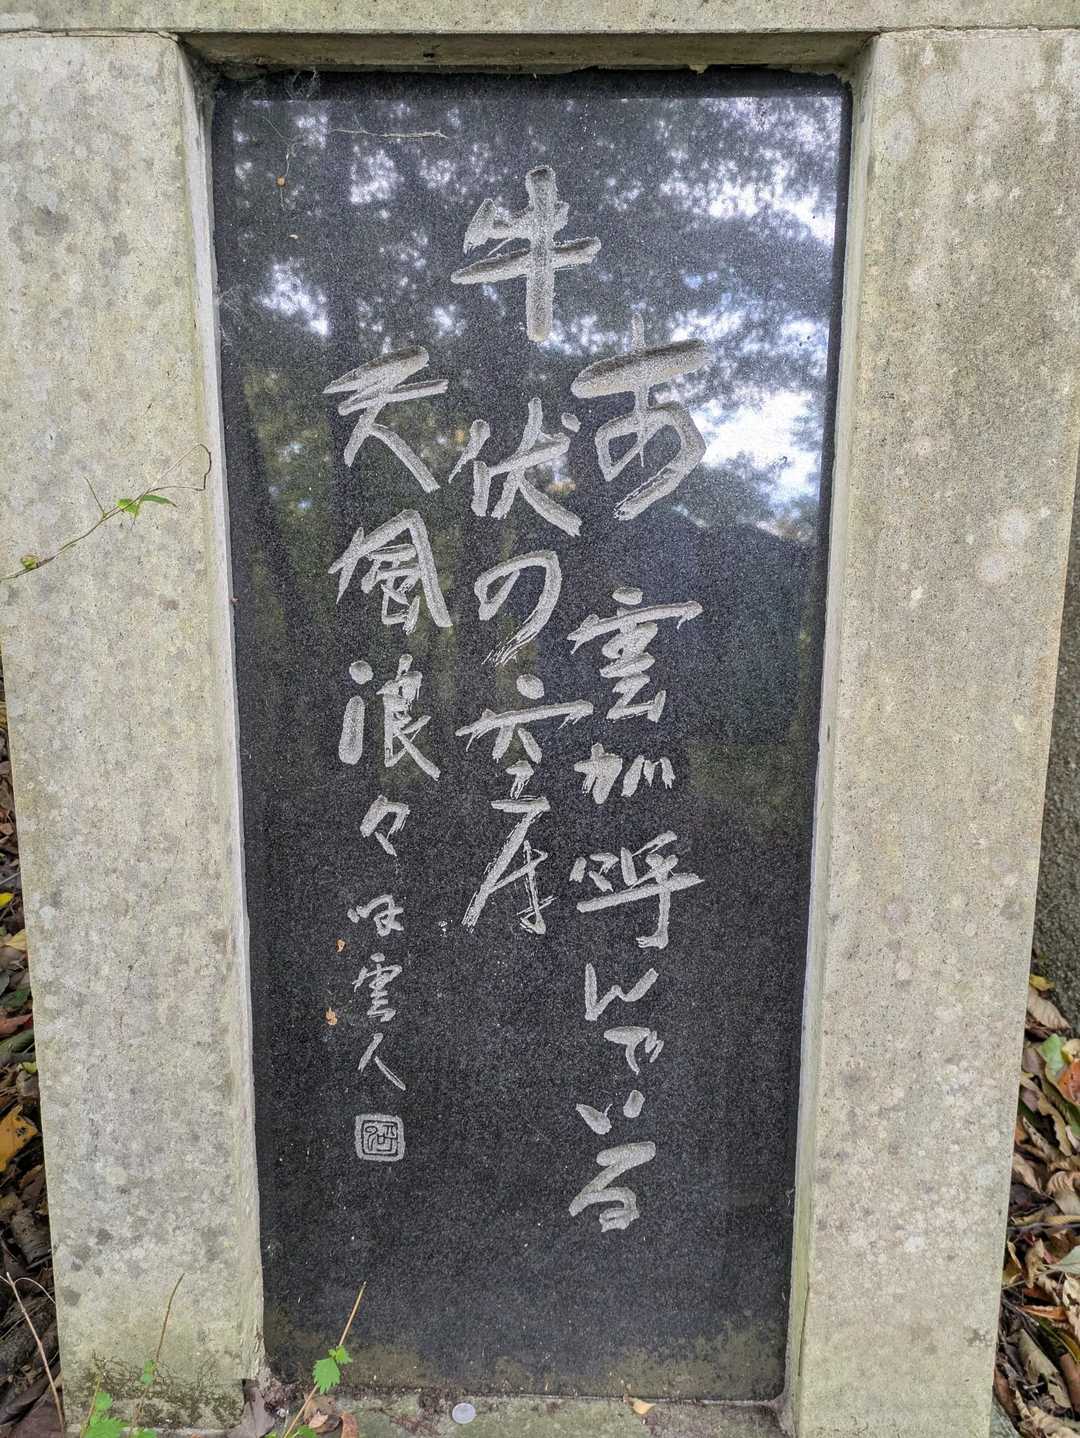 あ雲が呼んでいる
牛伏の
天風浪々
雲人